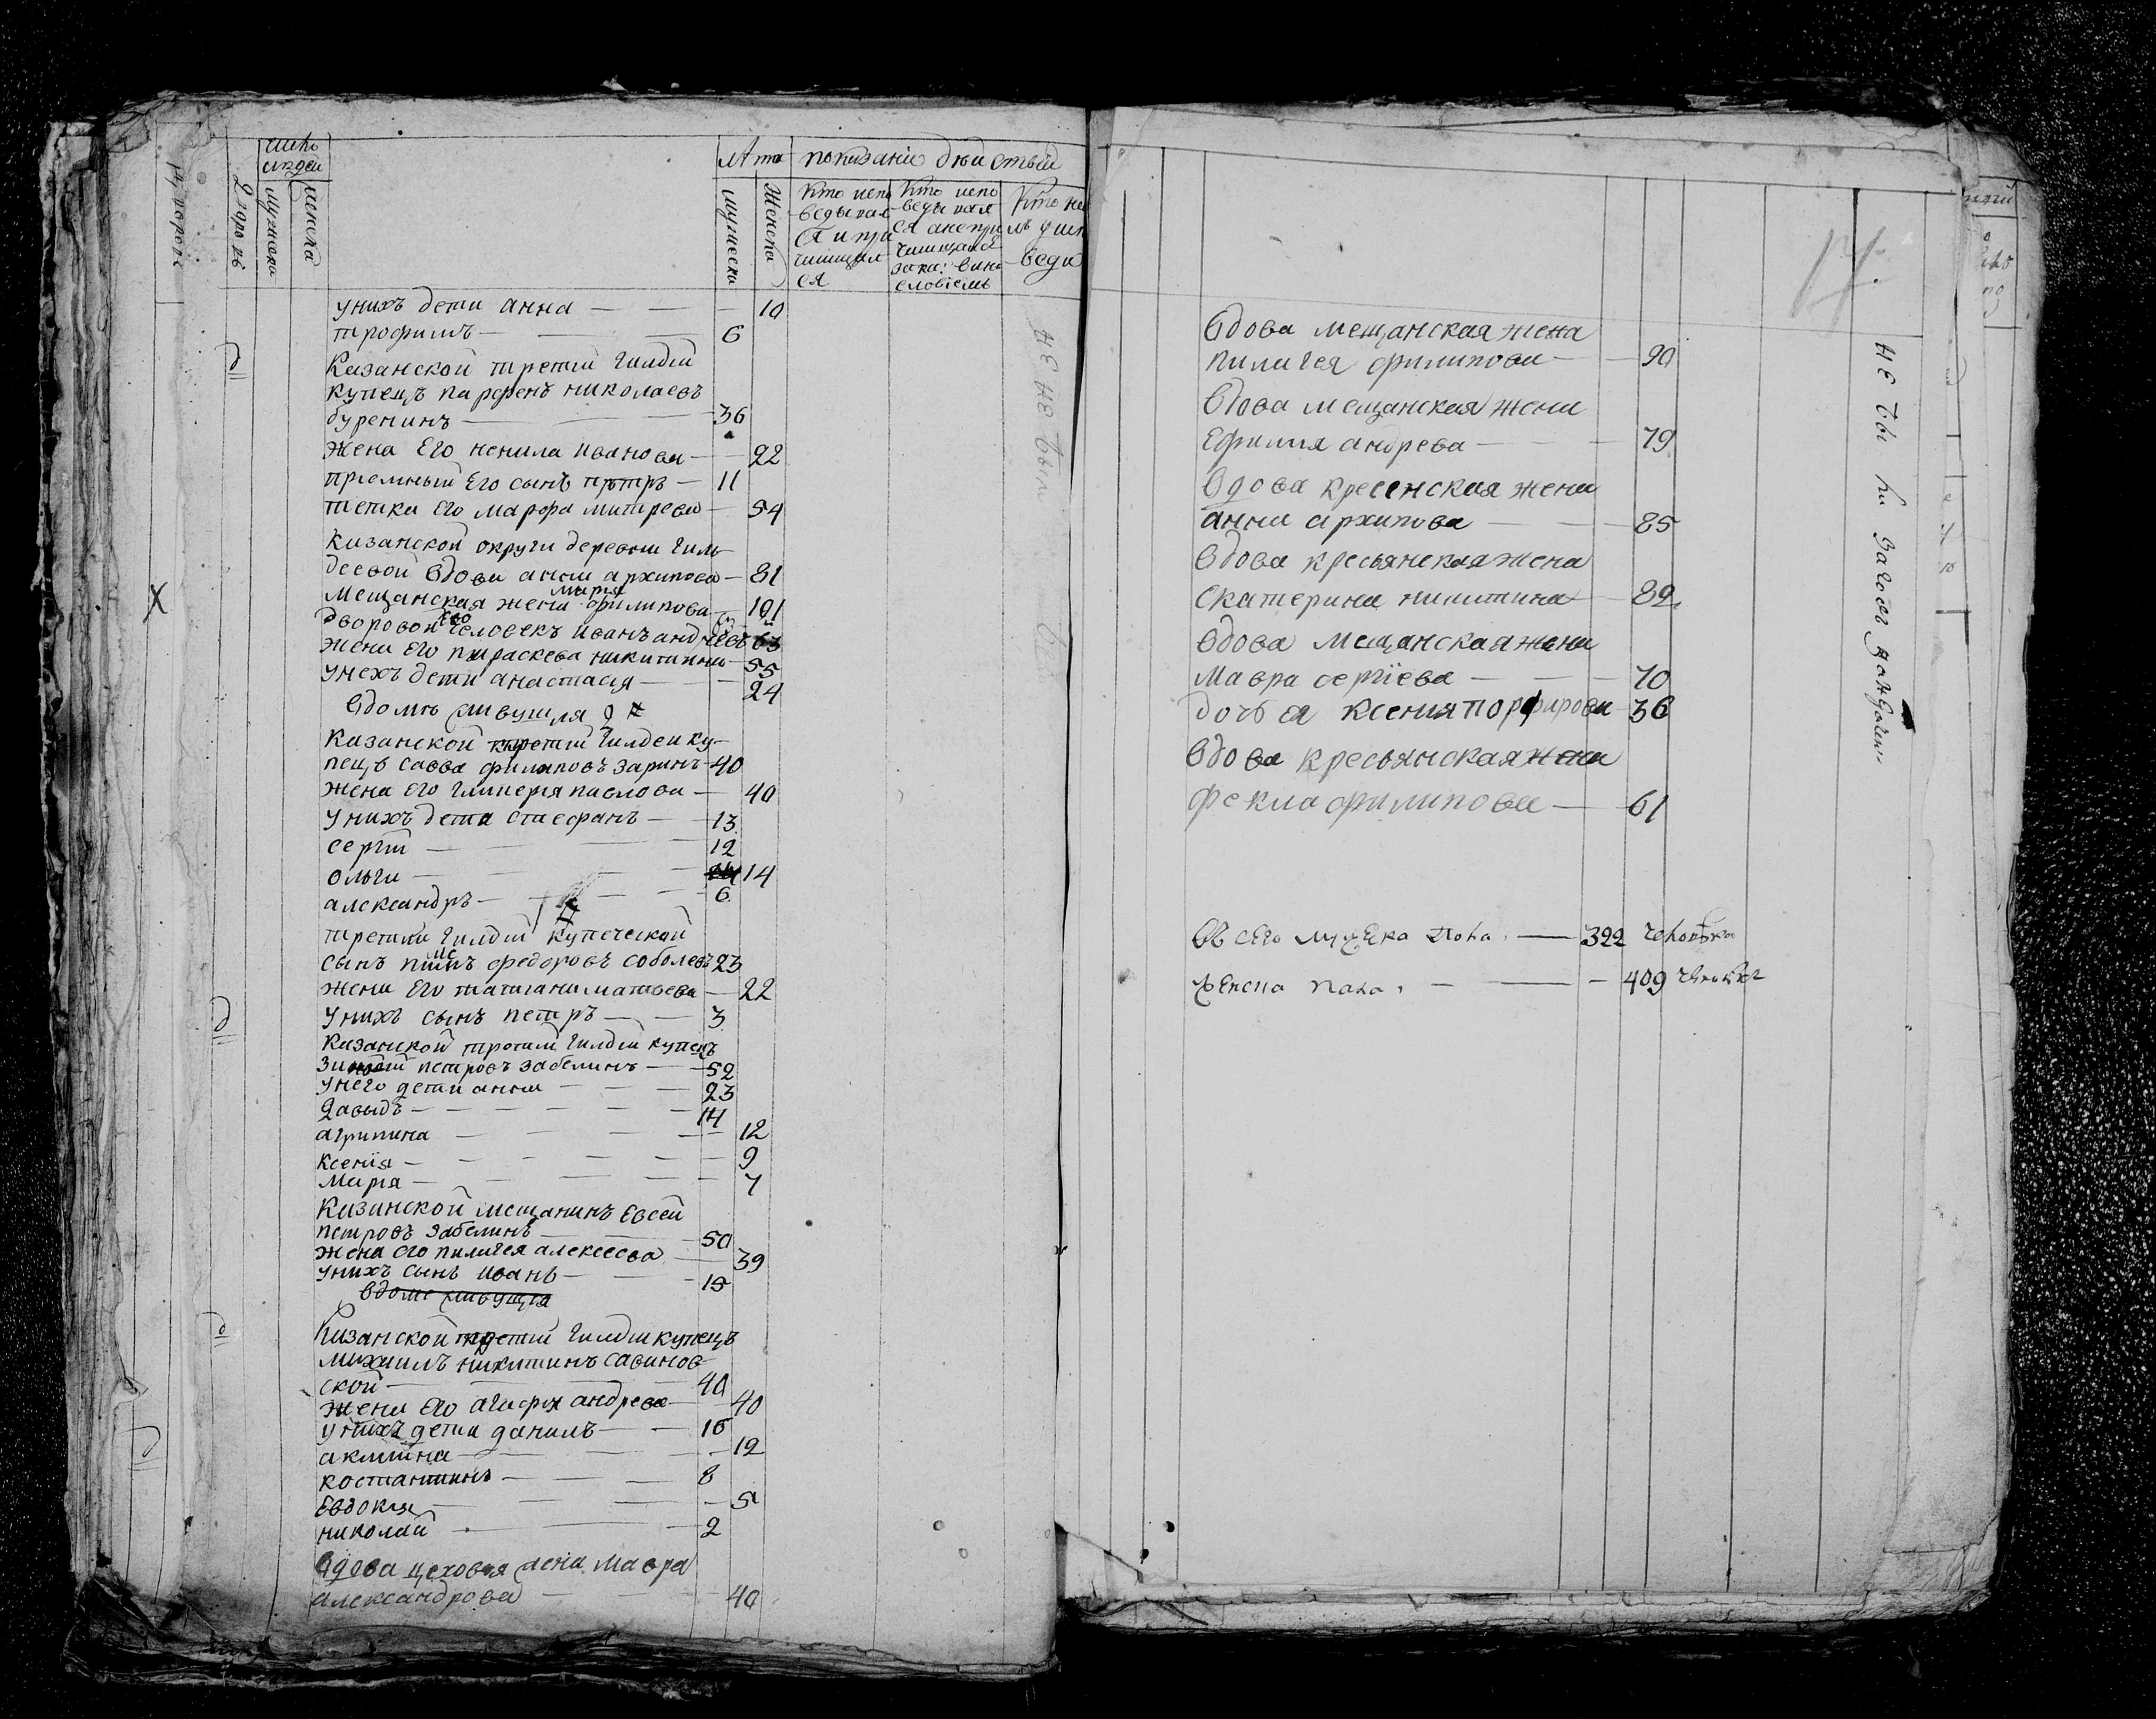 число
людей
лѣта
показаніи дѣиствъй
мужеска
женска
мужеска
женска
Кто испо
ведывал
ся и при
чищал
ся
Кто испо
ведывал
ся а не при
чищался
вино
словіемъ
Кто не
унихъ дети анна — 10
трофимъ — 6
Казанской третіи гилдіи
купецъ парфенъ николаевъ
буренинъ — 36
жена его ненила иванова — 22
приемный его сынъ петръ — 11
тетка его марфа митрева — 54
казанской округи деревни гиль
деевой вдова анна архипова — 81
мещанская жена мария филипова — 101
дворовой его человекъ иванъ андреевъ 63
жена его параскева никитина — 55
унехъ дети анастасия — 24
вдомѣ живущия
казанской третіи гилдеи ку
пецъ савва филиповъ заринъ 40
жена его гликерия павлова — 40
унихъ дети стефанъ — 13
сергій — 12
ольга — 14
александръ — 6
третіи гилдіи купеческой
сынъ федоровъ соболевъ 23
жена его татиана матвева — 22
унихъ сынъ петръ — 3
казанской третіи гилдіи купецъ
петровъ забелинъ — 52
унего дети анна — 23
давыдъ — 14
агрипина — 12
ксенія — 9
мария — 7
казанской мещанинъ евсей
петровъ забелинъ — 50
жена его пилагея алексеева — 39
унихъ сынъ иванъ — 15
вдоме живущия
казанской третіи гилдіи купецъ
михаилъ никитинъ савинов
ской — 40
жена его агафья андрева — 40
унихъ дети данилъ — 16
акилина — 12
костантинъ — 8
евдокия — 5
николай — 2
вдова цеховая жена мавра
александрова — 40
не были
14.
вдова мещанская жена
пилагея филипова — 90
вдова мещанская жена
ефимия андрева — 79
вдова кресенская жена
анна архипова — 85
вдова кресьянская жена
екатерина никитина — 82
вдова мещанская жена
мавра сергїева — 70
дочь ея ксения порфирова 36
вдова кресьянская жена
фекла филипова — 61
не бы ли
всего мужеска пола. — 322 человека
женска пола. — 409 человек